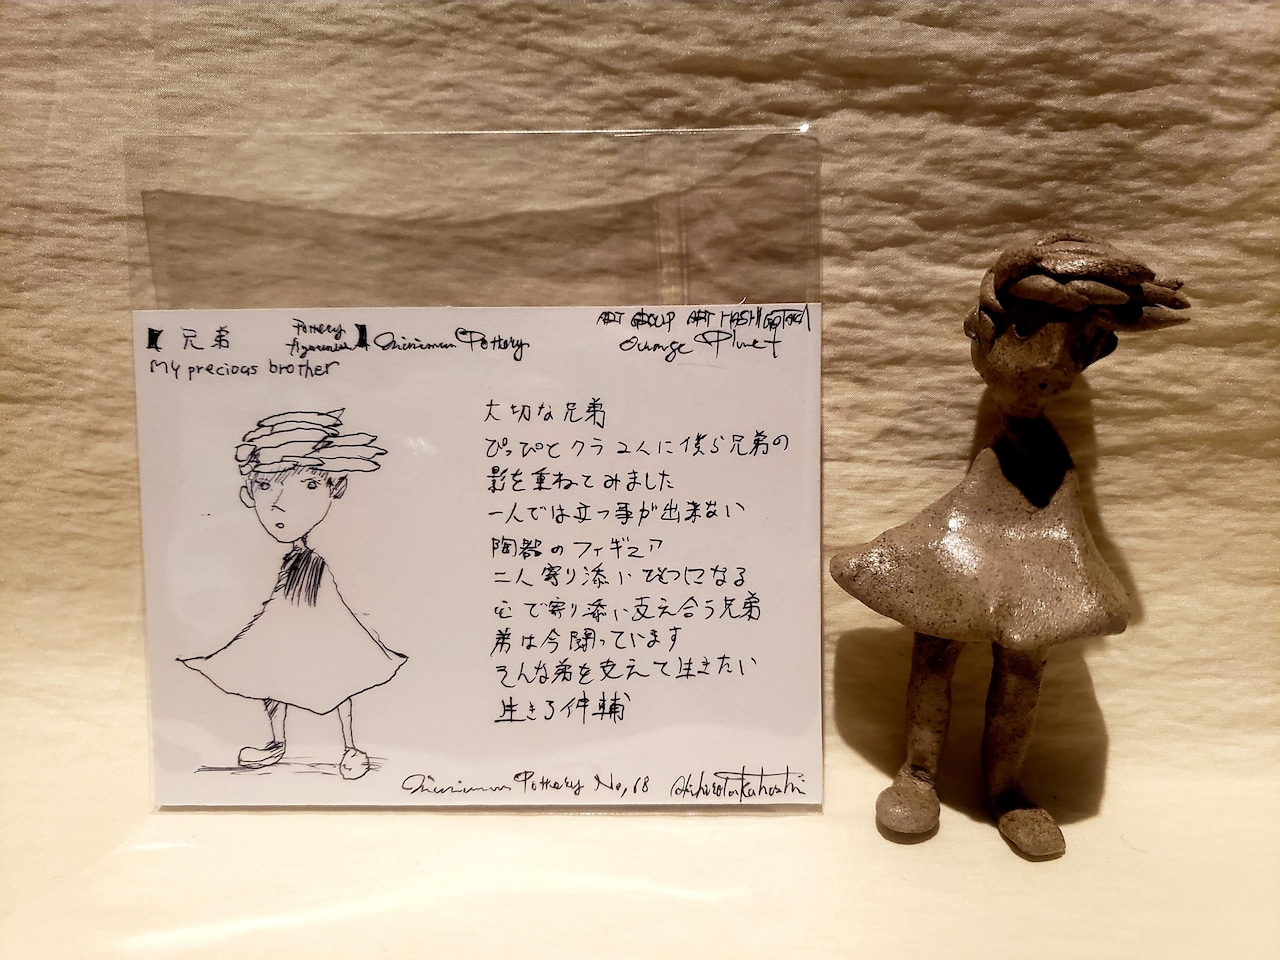 【兄弟 Pottery figurines】 Minimum Pottery
ART GROUP ART HASHIGOTAKA
Orange Planet
My precious brother
大切な兄弟
ぴっぴとクララ2人に僕ら兄弟の
影を重ねてみました
一人では立つ事が出来ない
陶器のフィギュア
二人寄り添いひとつになる
心で寄り添い支え合う兄弟
弟は今闘っています
そんな弟を支えて生きたい
生きろ伸輔
Minimum Pottery No,68